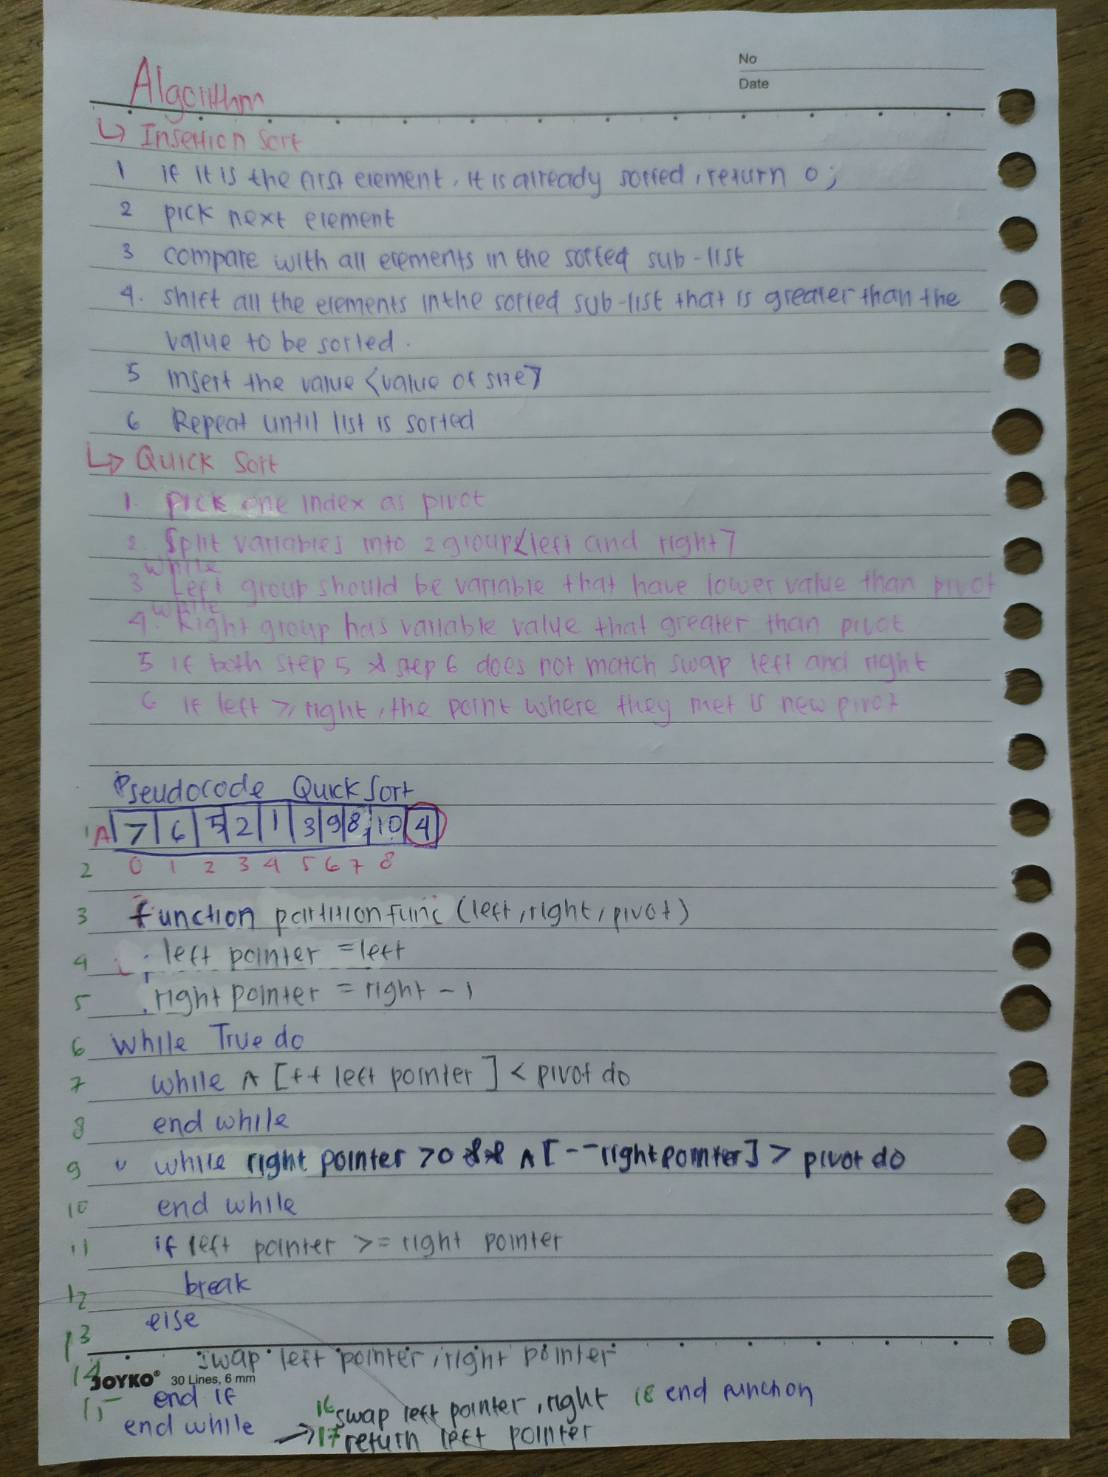 No
Date
Algorithm
↳ Insertion Sort
1 if it is the first element, it is already sorted, return 0;
2 pick next element
3 compare with all elements in the sorted sub-list
4. shift all the elements in the sorted sub-list that is greater than the
value to be sorted.
5 Insert the value <value of site>
6 Repeat until list is sorted
↳ Quick Sort
1. pick one index as pivot
2. Split variables into 2 group <left and right>
while
3 Left group should be variable that have lower value than pivot
while
4. Right group has variable value that greater than pivot
5 if both step 5 & step 6 does not match swap left and right
6 if left ≥ right, the point where they met is new pivot
Pseudocode Quick Sort
1 A 7 6 5 2 1 3 9 8 10 4
2 0 1 2 3 4 5 6 7 8
3 function partitionfunc (left, right, pivot)
4 left pointer = left
5 right pointer = right - 1
6 while True do
7 while A [++ left pointer] < pivot do
8 end while
9 while right pointer > 0 && A [--rightpointer] > pivot do
10 end while
11 if left pointer >= right pointer
12 break
13 else
14 swap left pointer, right pointer
JOYKO® 30 Lines, 6 mm
15 end if
end while
16 swap left pointer, right
→ 17 return left pointer
18 end function